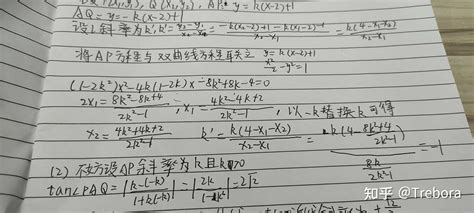 P(x₁,y₁), Q(x₂,y₂), AP: y=k(x-2)+1
AQ= y=-k(x-2)+1
设l斜率为k',k'=(y₂-y₁)/(x₂-x₁)=(-k(x₂-2)+1-k(x₁-2)-1)/(x₂-x₁)=k(4-x₁-x₂)/(x₂-x₁)
将AP方程与双曲线方程联立 {y=k(x-2)+1
x²/2-y²=1
(1-2k²)x²-4k(1-2k)x-8k²+8k-4=0
2x₁=(8k²-8k+4)/(2k²-1),x₁=(4k²-4k+2)/(2k²-1),以-k替换k可得
x₂=(4k²+4k+2)/(2k²-1) k'=k(4-x₁-x₂)/(x₂-x₁)=k(4-(8k²+4)/(2k²-1))/(8k/(2k²-1))=-1
(2)不妨设AP斜率为k且k>0
tan∠PAQ=|(k-(-k))/(1+k(-k))|=|2k/(1-k²)|=2√2
知乎 @Trebora